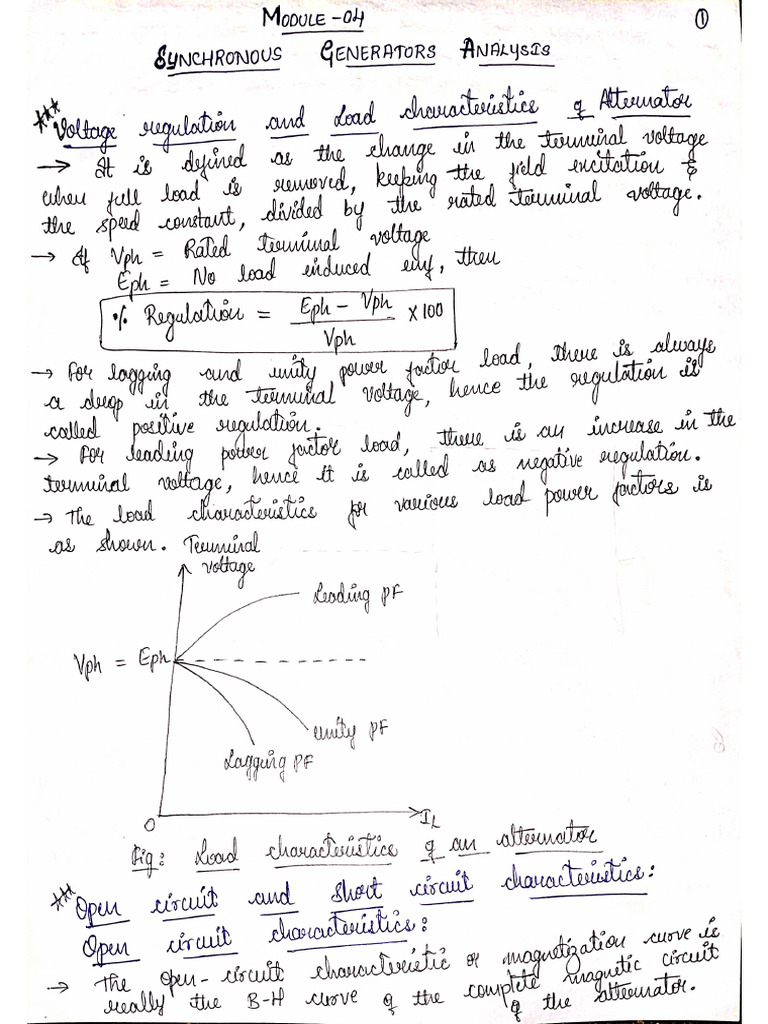 MODULE-04
①
SYNCHRONOUS GENERATORS ANALYSIS
*** Voltage regulation and Load characteristics of Alternator
→ It is defined as the change in the terminal voltage
when full load is removed, keeping the field excitation &
the speed constant, divided by the rated terminal voltage.
→ If Vph = Rated terminal voltage
Eph = No load induced emf, then
% Regulation = (Eph - Vph) / Vph × 100
→ For lagging and unity power factor load, there is always
a drop in the terminal voltage, hence the regulation is
called positive regulation.
→ For leading power factor load, there is an increase in the
terminal voltage, hence it is called as negative regulation.
→ The load characteristics for various load power factors is
as shown.
Terminal
voltage
Leading PF
Vph = Eph
Unity PF
Lagging PF
O
IL
Fig: Load characteristics of an alternator
*** Open circuit and short circuit characteristics:
Open circuit characteristics:
→ The open-circuit characteristic or magnetization curve is
really the B-H curve of the complete magnetic circuit
of the alternator.